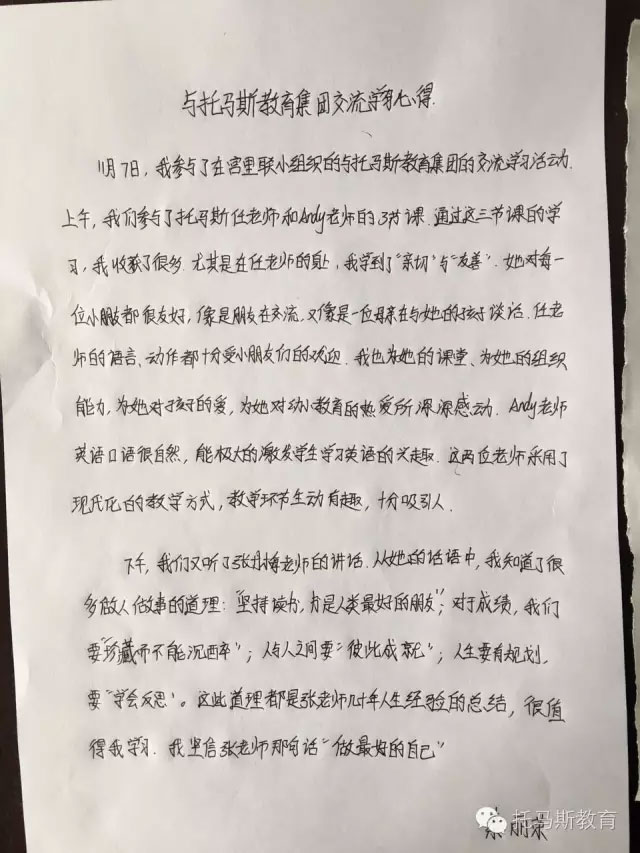 与托马斯教育集团交流学习心得.
11月7日，我参与了在宫里联小组织的与托马斯教育集团的交流学习活动.
上午，我们参与了托马斯任老师和Andy老师的3节课.通过这三节课的学
习，我收获了很多.尤其是在任老师的身上，我学到了"亲切"与"友善".她对每一
位小朋友都很友好，像是朋友在交流.又像是一位母亲在与她的孩子谈话.任老
师的语言、动作都十分受小朋友们的欢迎.我也为她的课堂、为她的组织
能力，为她对孩子的爱，为她对幼小教育的热爱所深深感动.Andy老师
英语口语很自然，能极大的激发学生学习英语的兴趣.这两位老师采用了
现代化的教学方式，教学环节生动有趣，十分吸引人.
下午，我们又听了张丹梅老师的讲话.从她的话语中，我知道了很
多做人做事的道理："坚持读书，书是人类最好的朋友"；对于成绩，我们
要"珍藏而不能沉醉"；人与人之间要"彼此成就"；人生要有规划，
要"学会反思"。这些道理都是张老师几十年人生经验的总结，很值
得我学习.我坚信张老师那句话"做最好的自己"
丽荣
托马斯教育